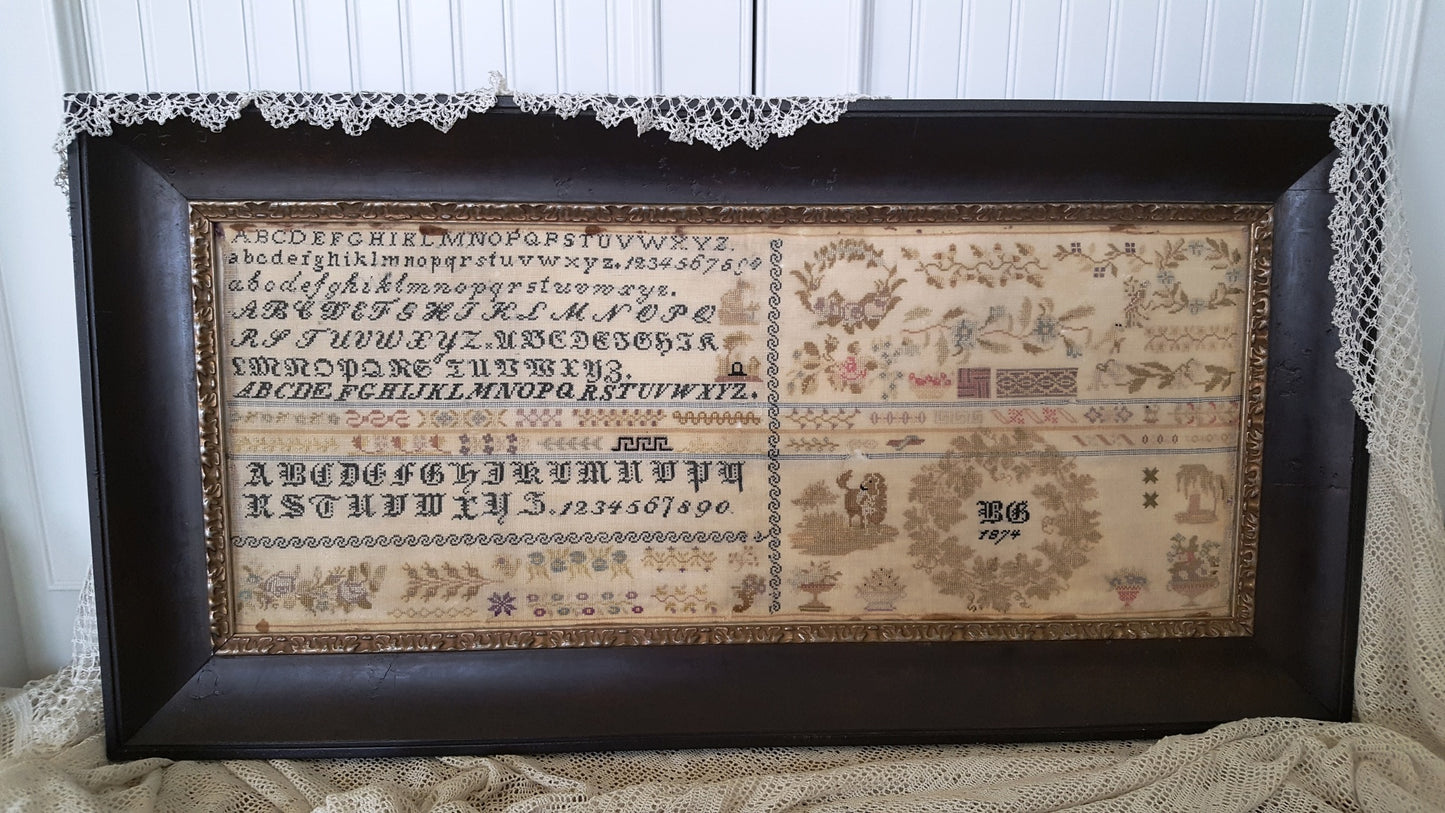 ABCDEFGHIKLMNOPQRSTUVWXYZ.
abcdefghiklmnopqrstuvwxyz. 1234567890
abcdefghiklmnopqrstuvwxyz.
ABCDEFGHIKLMNOPQ
RSTUVWXYZ. ABCDEFGHIK
LMNOPQRSTUVWXYZ.
ABCDEFGHIJKLMNOPQRSTUVWXYZ.
ABCDEFGHIKLMNOPQ
RSTUVWXYZ. 1234567890
BG
1874